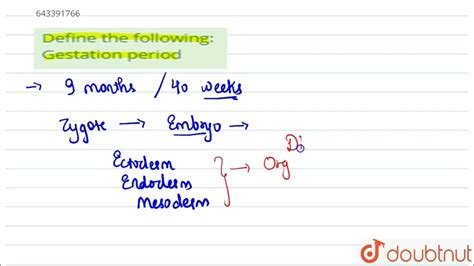 643391766
Define the following:
Gestation period
→ 9 months / 40 weeks
Zygote → Embryo →
Ectoderm
Endoderm
Mesoderm
} → Org
Di
doubtnut